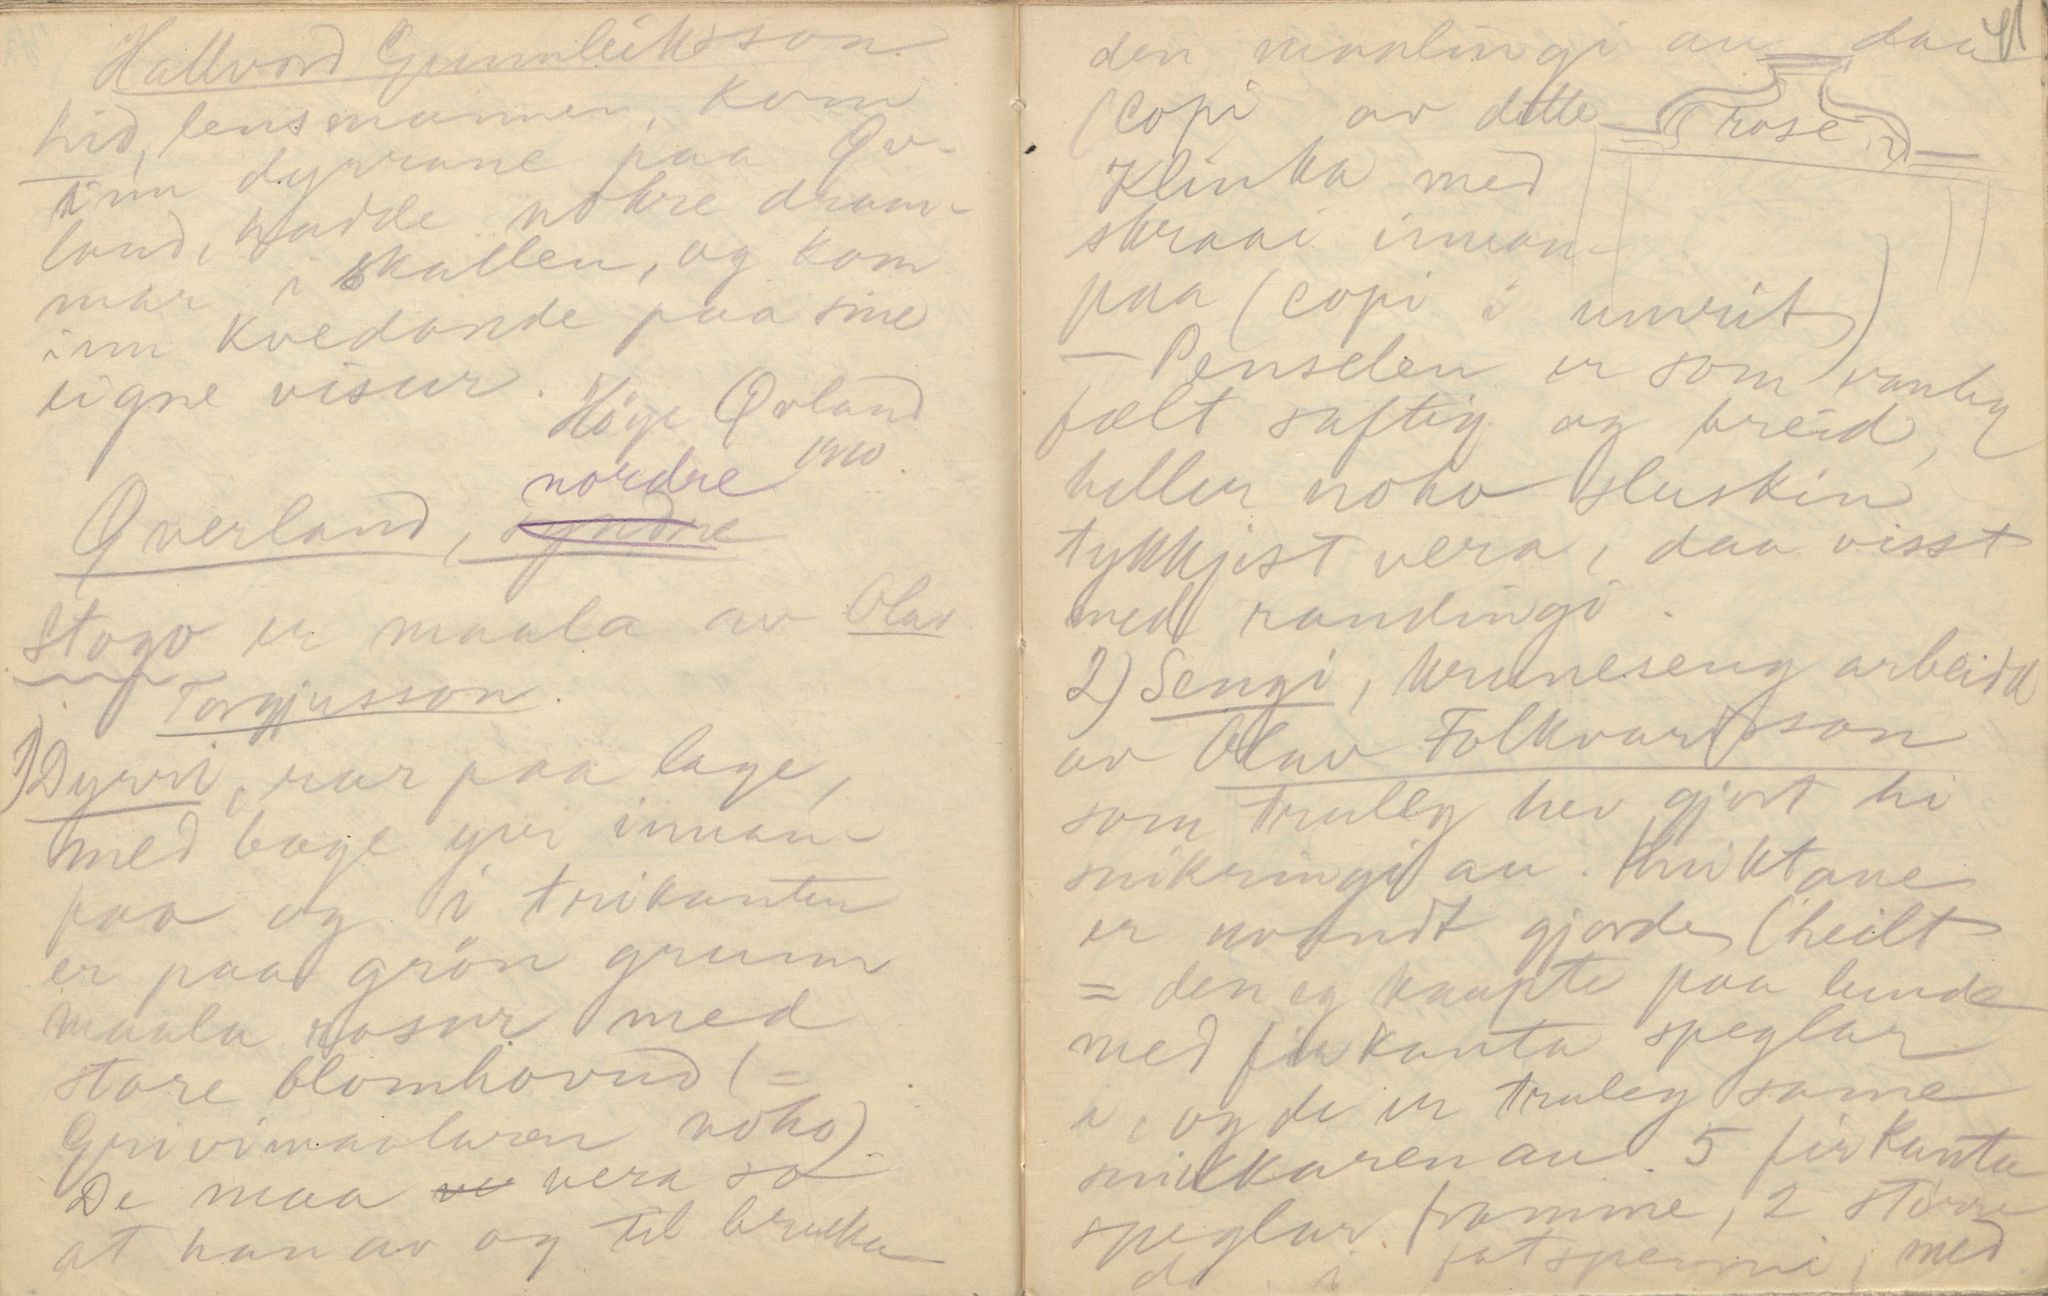 Hallvord Gunnleiksson
lid, lensmannen, kom
inn dyrrane paa Øv-
land, hadde nokre dram-
mar i skallen, og kom
inn kvedande paa sine
eigne visur.
Høye Øvland
1910.
nordre
Øverland, syndre
Stogo er maala av Olav
Torgjusson.
1) Dyrri, rar paa lage,
med boge yvi innan-
paa og i trikanten
er paa grön grunn
maala rosur med
store blomhovud (=
Grivimaalaren noko).
De maa ve vera so
at han av og til bruka
41
den maalingi au daa
(copi av dette
rose
Klinka med
skraai innan-
paa (copi i umrit)
– Penselen er som vanleg
fælt saftig og breid,
heller noko sluskin
tykkjist vera, daa visst
med randingi.
2) Sengi, kruneseng arbeidd
av Olav Folkvardsson
som truleg hev gjort hi
snikringi au. Kniktane
er uvandt gjorde (heilt
= den eg kaupte paa Lunde
med firkanta speglar
i, og de er truleg same
snikkaren au. 5 firkanta
speglar framme, 2 större
do. i fotspenni, med